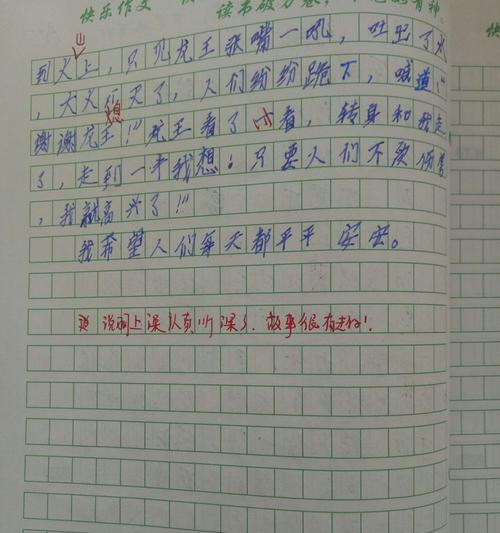 快乐作文
读书破万卷，
山
到火上，只见龙王张嘴一吼，吐出了水
，大火熄灭了，人们纷纷跪下，喊道：“
谢谢龙王！”龙王看了看，转身和我走
了，走到一半我想：只要人们不受伤害
，我就高兴了！”
我希望人们每天都平平安安。
说明上课认真听课了。故事很有趣！